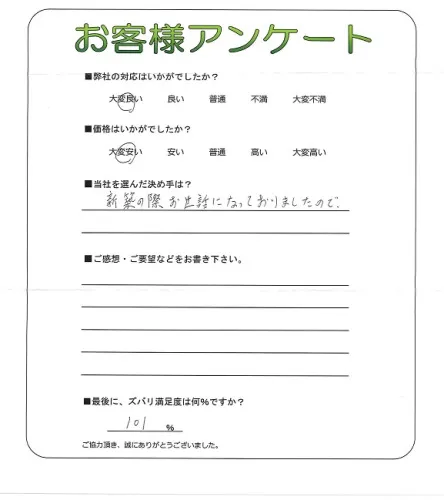 お客様アンケート
■弊社の対応はいかがでしたか？
大変良い 良い 普通 不満 大変不満
■価格はいかがでしたか？
大変安い 安い 普通 高い 大変高い
■当社を選んだ決め手は？
新築の際お世話になっておりましたので、
■ご感想・ご要望などをお書き下さい。
■最後に、ズバリ満足度は何％ですか？
101 ％
ご協力頂き、誠にありがとうございました。